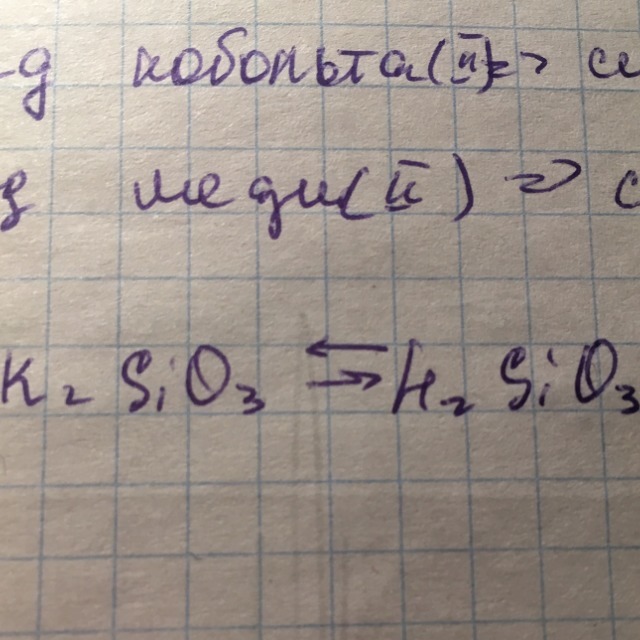 -д кобольта(II)=> си
д меди(II) => с
K₂SiO₃ ⇄ H₂SiO₃